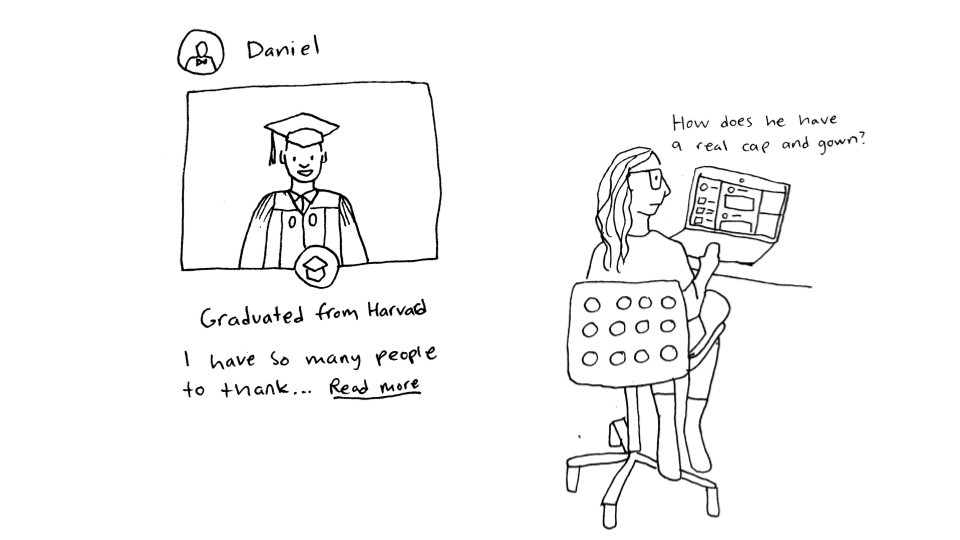 Daniel
Graduated from Harvard
I have so many people
to thank... Read more
How does he have
a real cap and gown?